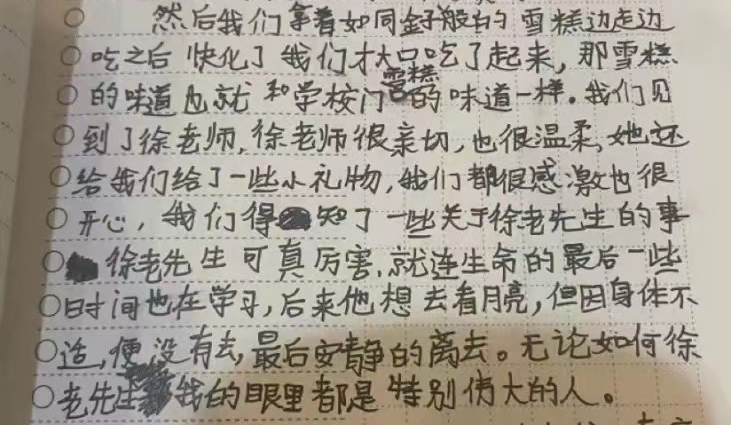 然后我们拿着如同金子般的雪糕边走边
吃之后快化了我们才大口吃了起来,那雪糕
的味道也就和学校门雪糕的味道一样。我们见
到了徐老师,徐老师很亲切,也很温柔,她还
给我们给了一些小礼物,我们都很感激也很
开心,我们得知了一些关于徐老先生的事
徐老先生可真厉害,就连生命的最后一些
时间也在学习,后来他想去看月亮,但因身体不
适,便没有去,最后安静的离去。无论如何徐
老先生我的眼里都是特别伟大的人。